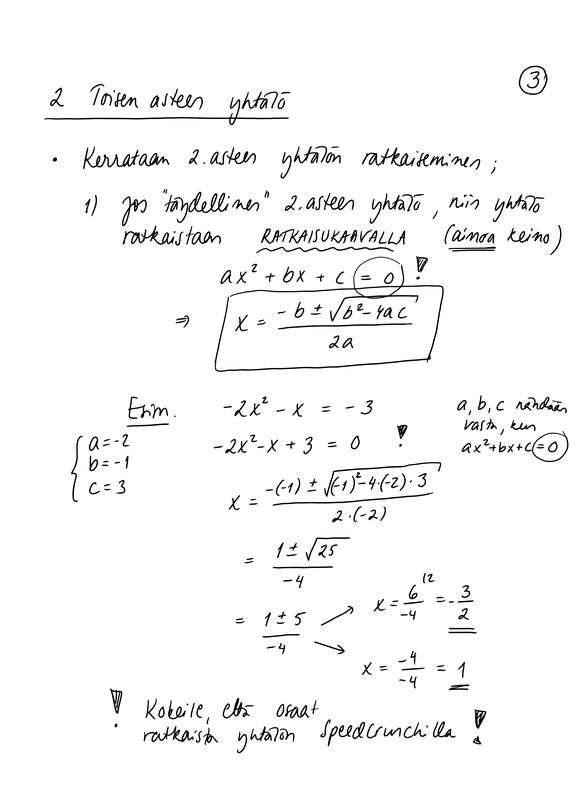 3
2 Toisen asteen yhtälö
• Kerrataan 2.asteen yhtälön ratkaiseminen ;
1) Jos "täydellinen" 2.asteen yhtälö, niin yhtälö
ratkaistaan RATKAISUKAAVALLA (ainoa keino)
ax² + bx + c = 0 !
⇒ x = (-b ± √(b²-4ac))/(2a)
Esim. -2x² - x = -3
a, b, c nähdään
vasta, kun
ax²+bx+c=0
-2x²-x+3 = 0 !
{ a=-2
b=-1
c=3
x = (-(-1) ± √((-1)²-4·(-2)·3))/(2·(-2))
= (1 ± √25)/(-4)
= (1 ± 5)/(-4)
x = 6/(-4) ⁽² = -3/2
x = (-4)/(-4) = 1
! Kokeile, että osaat
ratkaista yhtälön Speedcrunchilla !